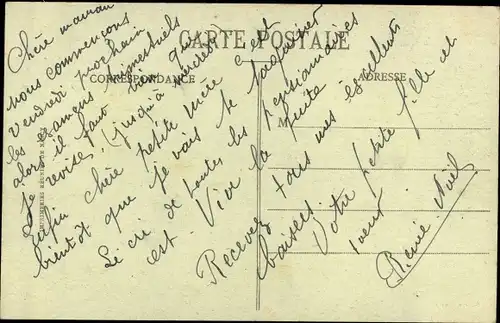 CARTE POSTALE
CORRESPONDANCE
ADRESSE
Chère maman
nous commençons
vendredi prochain
les examens trimestriels
alors il faut bien que
Je revise, (jusqu'à
Enfin chère petite mère c'est
bientôt que je vais te
Le cri de toutes les pensionnaires
est. Vive la
Recevez tous mes excellents
baisers.
Votre petite fille et
soeur
Renée Noël